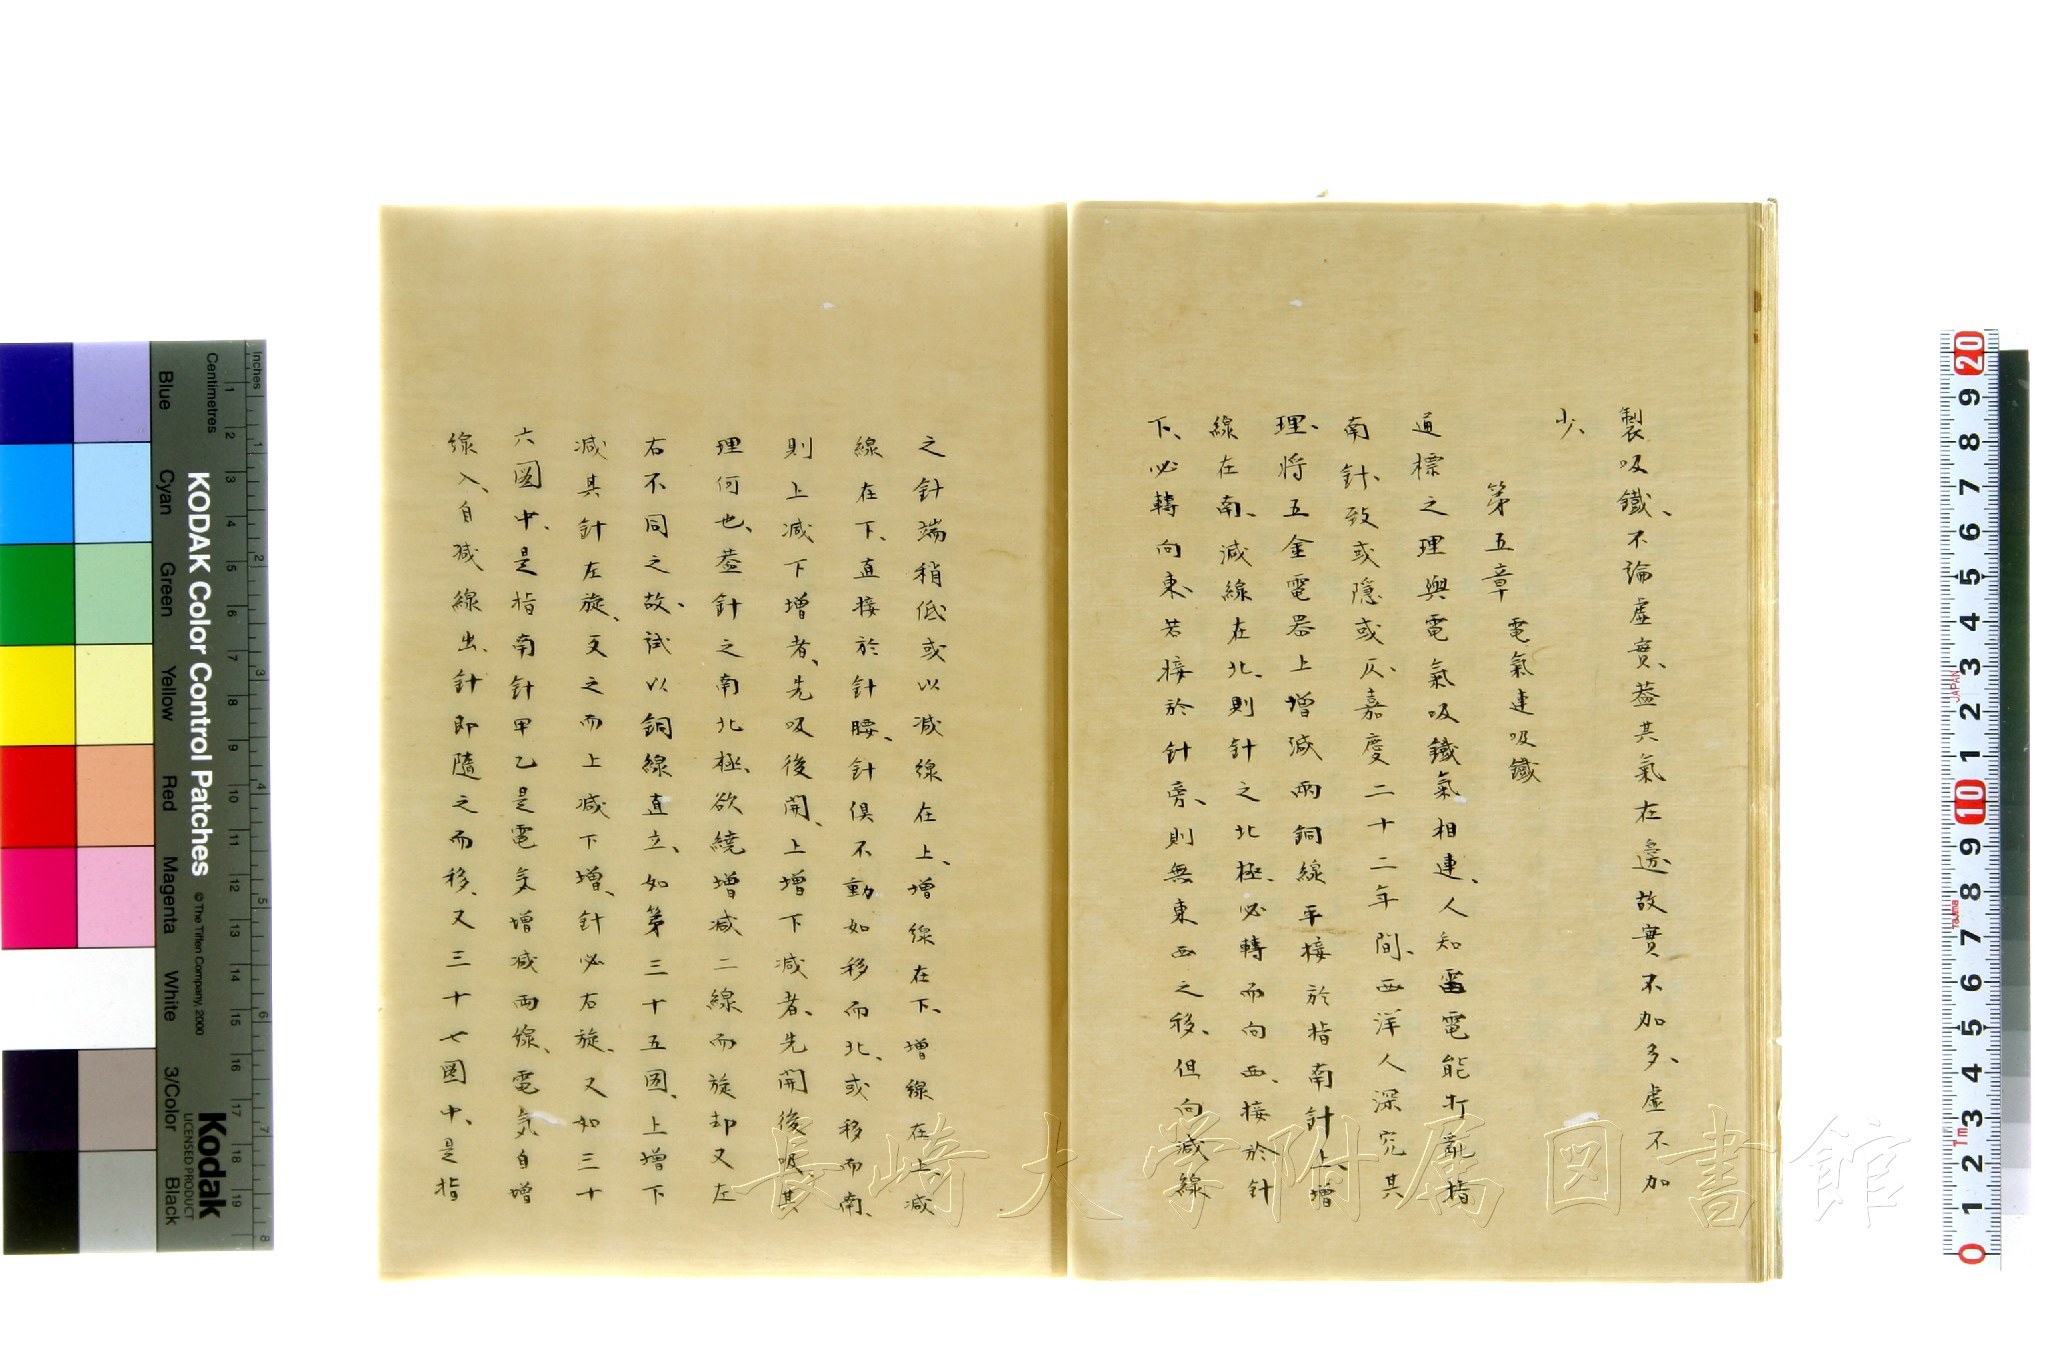 製吸鐵、不論虛實、蓋其氣在邊故實不加多、虛不加
少、
第五章 電氣連吸鐵
通標之理與電氣吸鐵氣相連、人知雷電能打亂指
南針、致或隱或仄、嘉慶二十二年間、西洋人深究其
理、將五金電器上增減兩銅線平接於指南針上、增
線在南、減線在北、則針之北極、必轉而向西、接於針
下、必轉向東、若接於針旁、則無東西之移、但向減線
之針端稍低或以減線在上、增線在下、增線在上、減
線在下、直接於針腰、針俱不動如移而北、或移而南、
則上減下增者、先吸後開、上增下減者、先開後吸、其
理何也、蓋針之南北極、欲繞增減二線而旋却又左
右不同之故、試以銅線直立、如第三十五圖、上增下
減其針左旋、反之而上減下增、針必右旋、又如三十
六圖中、是指南針甲乙是電氣增減兩線、電気自增
線入、自減線出、針即隨之而移、又三十七圖中、是指
長崎大学附属図書館
KODAK Color Control Patches
© The Tiffen Company, 2000
Kodak
LICENSED PRODUCT
Inches
Centimetres
1 2 3 4 5 6 7 8 9 10 11 12 13 14 15 16 17 18 19
1 2 3 4 5 6 7 8
Blue
Cyan
Green
Yellow
Red
Magenta
White
3/Color
Black
20 9 8 7 6 5 4 3 2 1 10 9 8 7 6 5 4 3 2 1 0
JAPAN
1m